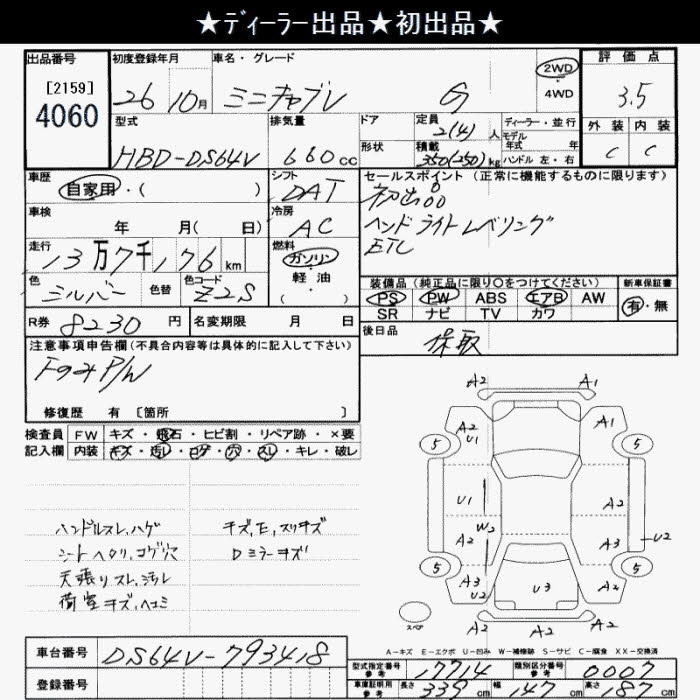 ★ディーラー出品★初出品★
出品番号
[2159]
4060
初度登録年月
26 10月
車名・グレード
ミニキャブV G
2WD
・
4WD
評価点
3.5
外装 内装
C C
型式
HBD-DS64V
排気量
660cc
ドア
形状
定員
2(4)人
積載
350(250)kg
ディーラー・並行
モデル
年式 年
ハンドル 左・右
車歴
自家用・( )
シフト
DAT
セールスポイント (正常に機能するものに限ります)
初出品
ヘッドライトレベリング
ETC
車検
年 月( 日)
冷房
AC
走行
13万7千176km
燃料
ガソリン・
軽油
・
( )
色
シルバー
色替
色コード
Z2S
装備品(純正品に限り○をつけてください)
PS PW ABS エアB AW
SR ナビ TV カワ
新車保証書
有・無
R券 8230円
名変期限 月 日
後日品
保取
注意事項申告欄(不具合内容等は具体的に記入して下さい)
Fのみ P/W
修復歴 有 [箇所 ]
検査員 FW キズ・飛石・ヒビ割・リペア跡・×要
記入欄 内装 キズ・汚レ・コゲ・穴・スレ・キレ・破レ
ハンドルスレ、ハゲ
シートヘタリ、コゲ穴
天張りスレ、汚レ
荷室キズ、ヘコミ
キズ、E、スリキズ
Dミラーキズ
A2 A1
A2 A1
U1
5 5
U1 A2
W2
A2 A3 U2
5 5
A3 A2
U2
U3
スペア
A2 A2
A2
A-キズ E-エクボ U-凹み W-補修跡 S-サビ C-腐食 XX-交換済
車台番号 DS64V-793418
登録番号
型式指定番号
参考
17714
類別区分番号
参考
0007
車庫証明用
参考
長さ 339cm 幅 147cm 高さ 187cm